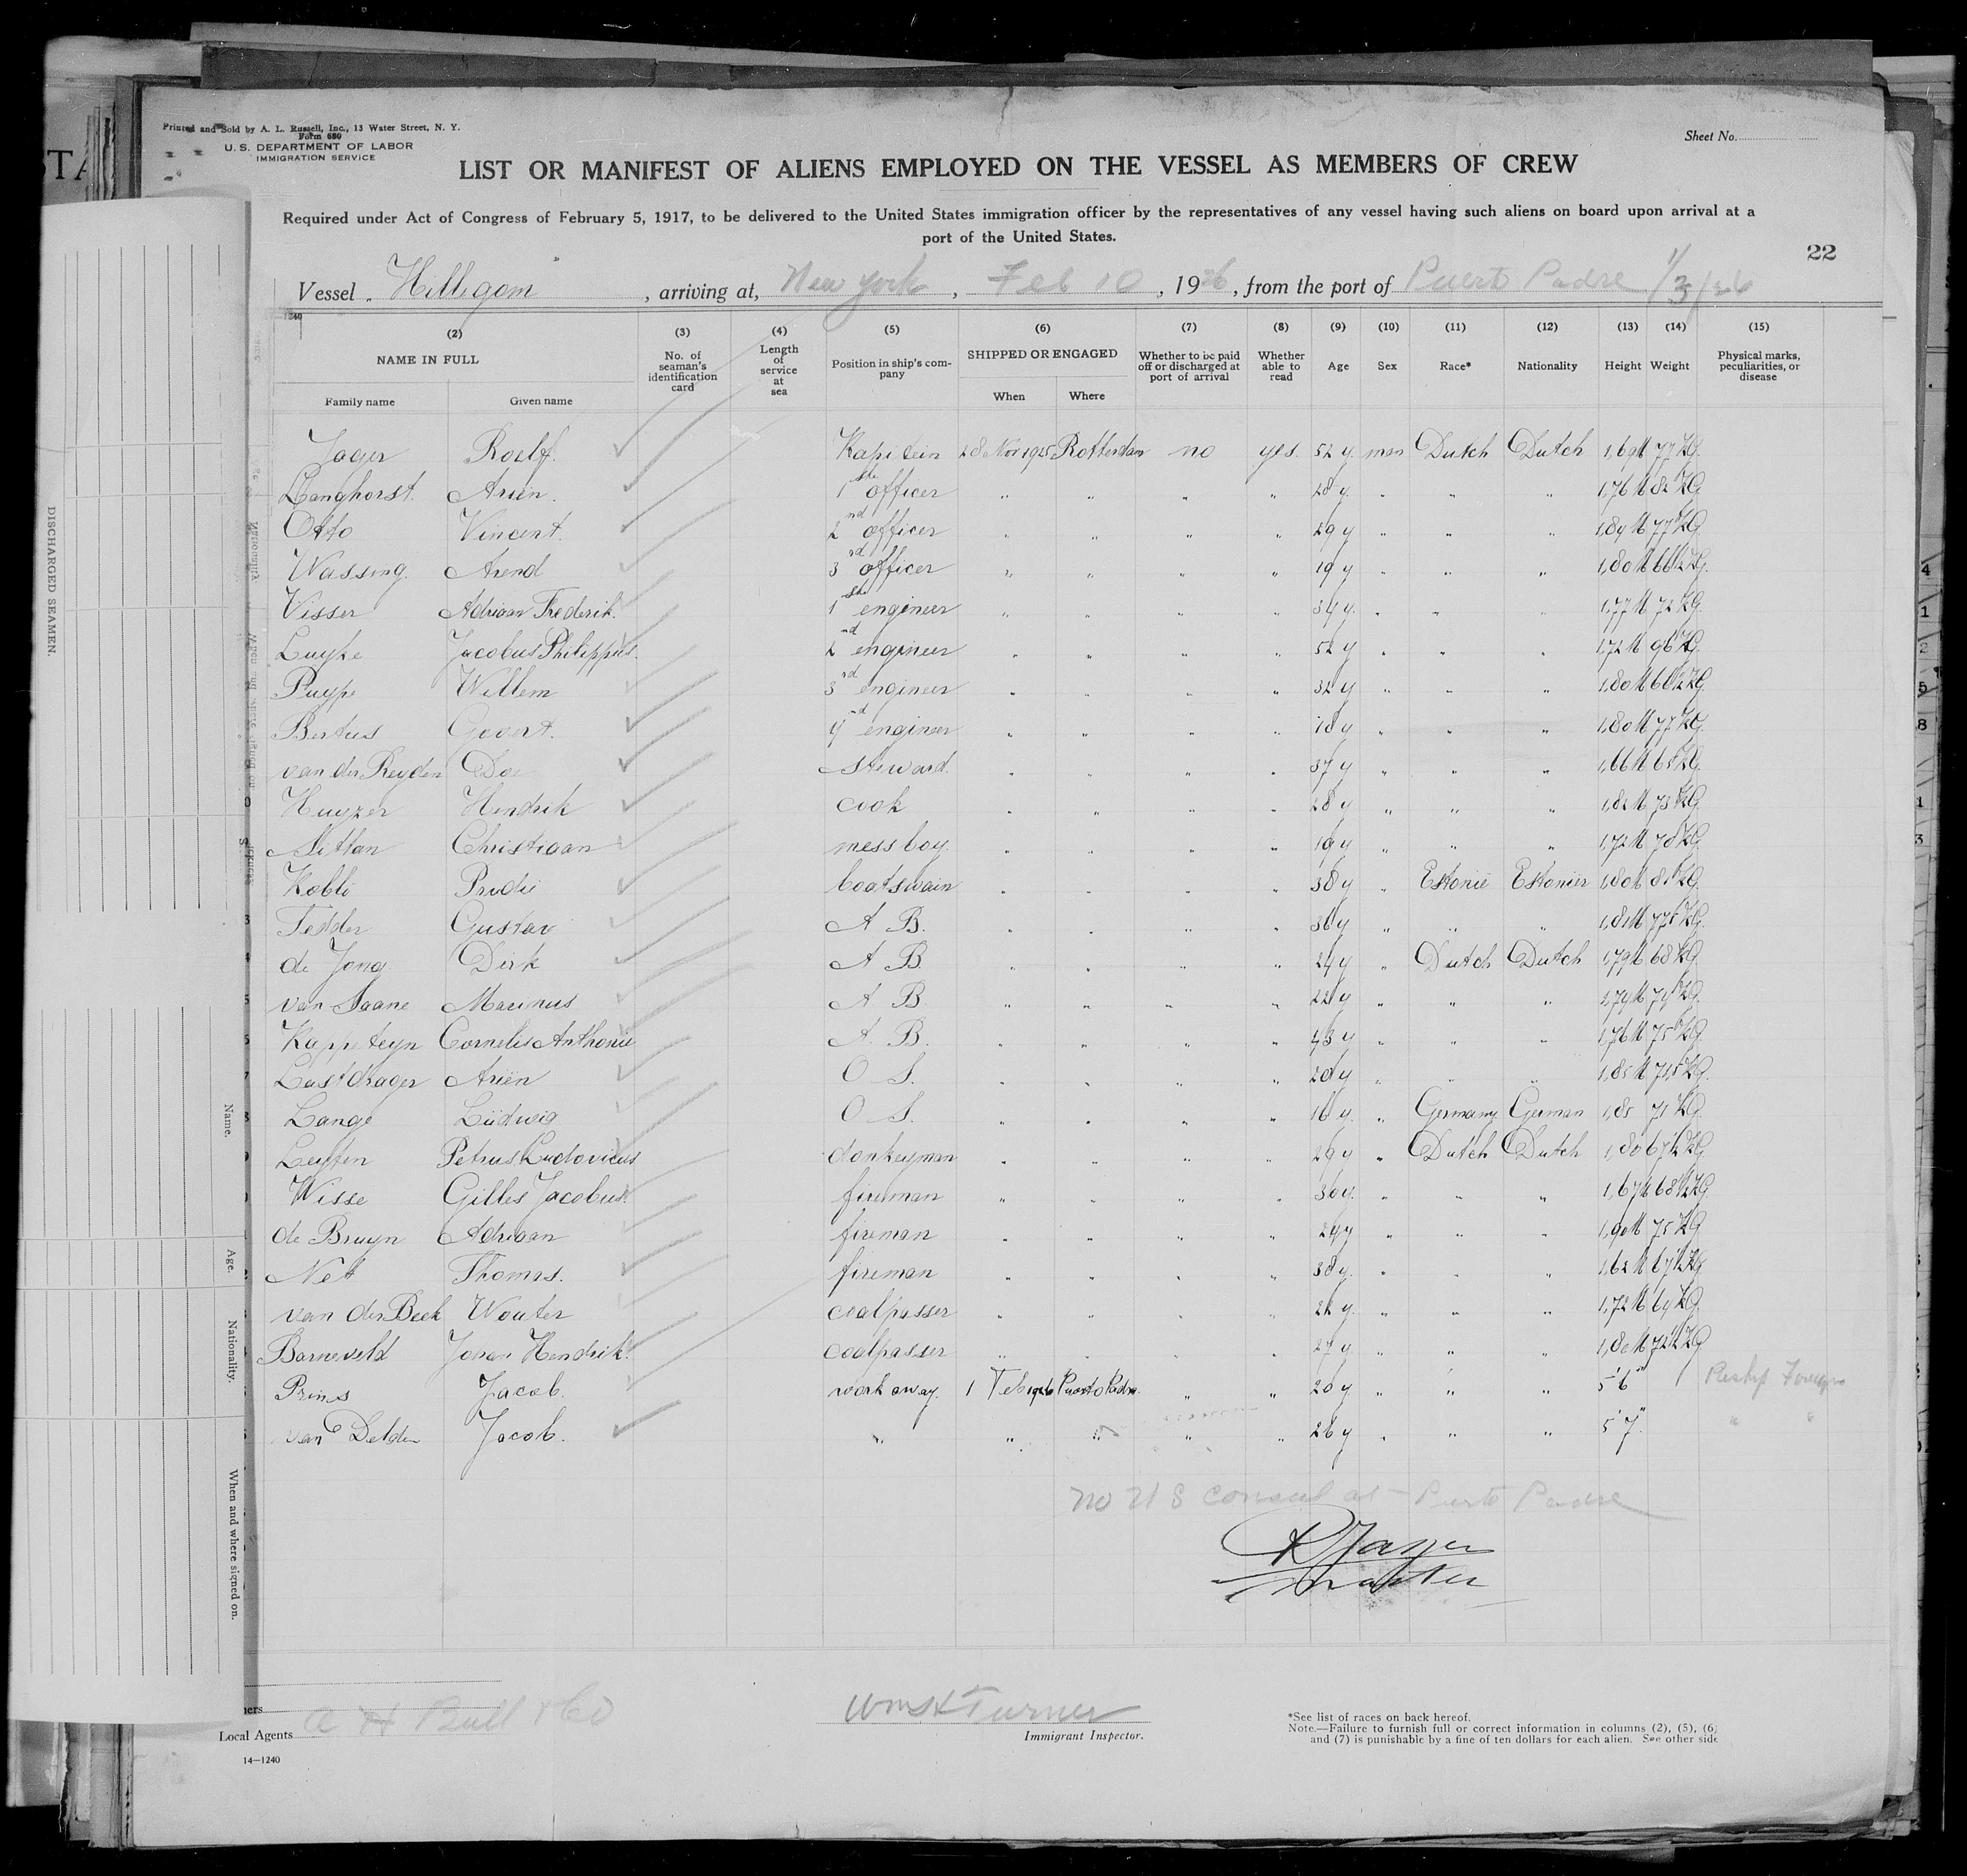 Printed and Sold by A. L. Russell, Inc., 13 Water Street, N. Y.
Form 680
U. S. DEPARTMENT OF LABOR
IMMIGRATION SERVICE
Sheet No.
LIST OR MANIFEST OF ALIENS EMPLOYED ON THE VESSEL AS MEMBERS OF CREW
Required under Act of Congress of February 5, 1917, to be delivered to the United States immigration officer by the representatives of any vessel having such aliens on board upon arrival at a
port of the United States.
22
Vessel Hillegom, arriving at, New York, Feb 10, 1926, from the port of Puerto Padre
1240
(2) (3) (4) (5) (6) (7) (8) (9) (10) (11) (12) (13) (14) (15)
NAME IN FULL No. of seaman's identification card Length of service at sea Position in ship's company SHIPPED OR ENGAGED Whether to be paid off or discharged at port of arrival Whether able to read Age Sex Race* Nationality Height Weight Physical marks, peculiarities, or disease
Family name Given name When Where
Jager Roelf. Kapitein 28 Nov 1925 Rotterdam no yes. 52 y. man Dutch Dutch 1,69M 77KG.
Langhorst. Arien. 1ste officer " " " " 28 y. " " " 1,76M 82KG
Otto Vincent. 2nd officer " " " " 29 y " " " 77KG
Wassing. Arend 3rd officer " " " " 19 y " " " 1,80M
Visser Adriaan Frederik. 1ste engineer " " " " 34 y. " " 1,77M 72KG
Luyke Jacobus Philippus. 2nd engineer " " " " 52 y " " " 1,72M 96KG
Puype Willem 3rd engineer " " " " 32 y " " " 1,80M
Bertus Govert. 4nd engineer " " " " 18 y " " " 1,80M 77KG
van der Reyden steward. " " " " 37 y " " " 1,66M
Huyzer Hendrik cook " " " " 28 y " " " 1,82M
Christiaan mess boy. " " " " 19 y " " " 1,72M 70KG
boatswain " " " " 38 y " Estonië Estonier 1,80M
Tedder Gustav A B. " " " " 36 y " " " 1,81M
de Jong Dirk A B. " " " " 24 y " Dutch Dutch 1,79M 68KG
van Saane Marinus A B. " " " " 22 y " " "
Kappeteyn Cornelis Anthonie A. B. " " " " 43 y " " " 1,76M 75KG
Lastdrager Arien O S. " " " " 20 y " " "
Lange Lüdwig O S. " " " 16 y. " Germany German 71KG
Petrus Ludovicus donkeyman " " " " 29 y " Dutch Dutch 1,80
Wisse Gilles Jacobus. fireman " " " " 30 y. " " " 1,67M
de Bruyn Adriaan fireman " " " " 24 y " " " 1,90M 75KG
Net Thomas. fireman " " " " 38 y. " " " 1,62M
van der Beek Wouter coalpasser " " " " " " " 1,72M 69KG
Barneveld Johan Hendrik. coalpasser " " " " 27 y " " "
Prins Jacob. workaway. 1 Feb 1926 Puerto Padre. " " 20 y " " " 5'6" Reship Foreign
van Delden Jacob. " " " " " 26 y " " " 5'7" " "
no U S Consul at Puerto Padre
R Jager
master
A H Bull & Co
Local Agents
Wm H Turner
Immigrant Inspector.
*See list of races on back hereof.
Note.—Failure to furnish full or correct information in columns (2), (5), (6)
and (7) is punishable by a fine of ten dollars for each alien. See other side
14—1240
DISCHARGED SEAMEN.
Name.
Age.
Nationality.
When and where signed on.